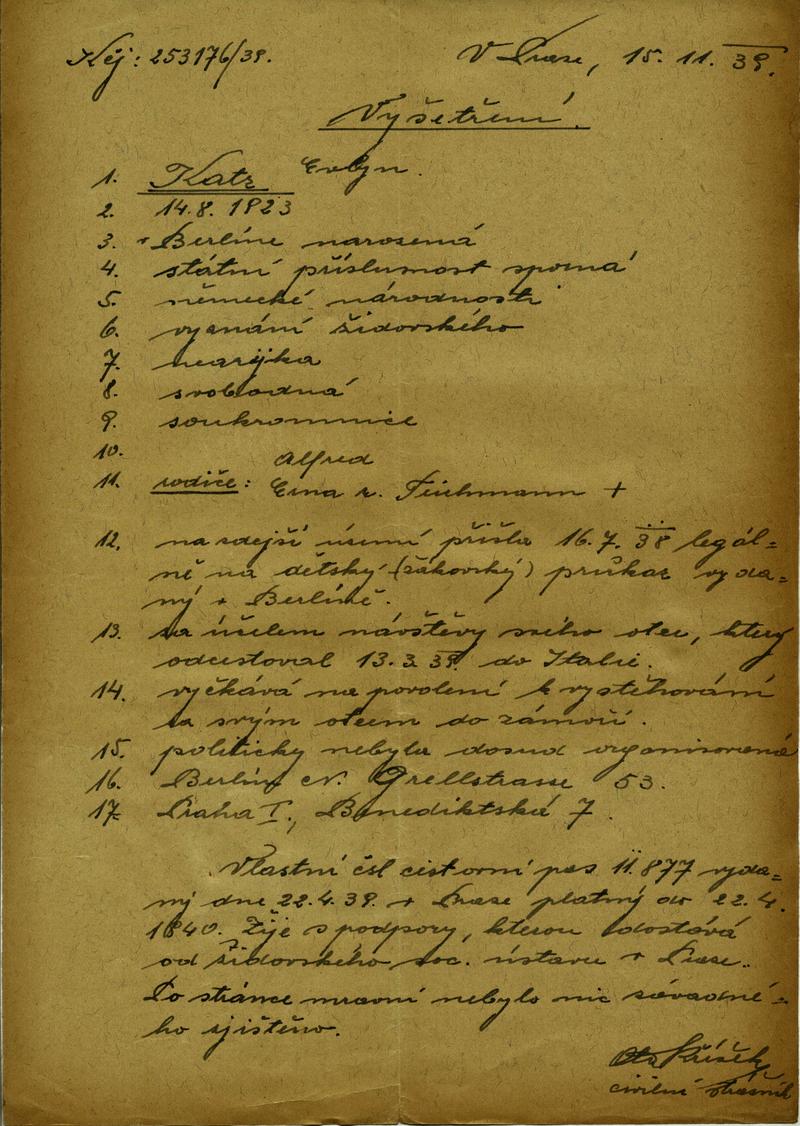 Kčj: 253176/39. V Praze, 15. 11. 39.
Vyšetření.
1. Katz Evlyn.
2. 14.8. 1923
3. v Berlíne narozená
4. státní příslušnost sporná
5. německé národnosti
6. vyznání židovského
7. nearijka
8. svobodná
9. soukromnice
10.
Alfred
11. rodiče: Erna r. Teichmann +
12. na zdejší území přišla 16.7. 38 legál=
ně na dětský (žákovský) průkaz vyda=
ný v Berlíně.
13. za účelem návštěvy svého otce, který
odcestoval 13.3. 39. do Italie.
14. vyčkává na povolení k vystěhování
za svým otcem do zámoří.
15. politicky nebyla dosud organisovaná
16. Berlín N. Grellstrasse 53.
17. Praha I., Benediktská 7.
Vlastní čsl cestovní pas 11.877 vyda=
ný dne 22.4.39. v Praze platný do 22.4.
1940. Žije s podpory, kterou dostává
od židovského soc. ústavu v Praze.
Po stránce mravní nebylo nic závadné=
ho zjištěno.
Ota
civilní strážník